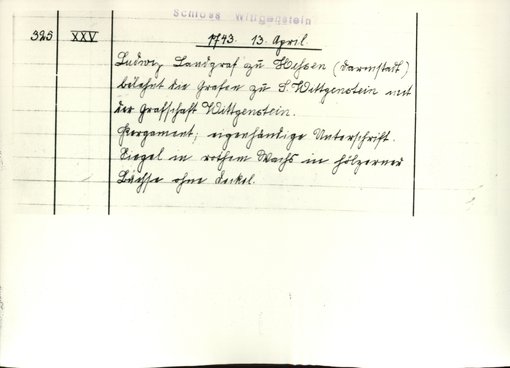 Schloss Wittgenstein
325 XXV 1743. 13. April.
Ludwig Landgraf zu Hessen (Darmstadt)
belehnt die Grafen zu S. Wittgenstein mit
der Grafschaft Wittgenstein.
Pergament; eigenhändige Unterschrift.
Siegel in rothem Wachs in hölzerner
Büchse ohne Deckel.